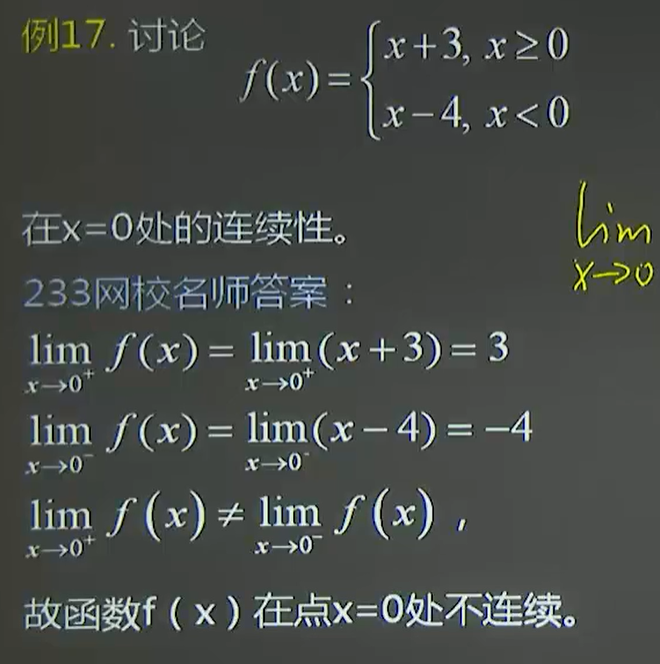 例17. 讨论
f(x)={x+3, x≥0
x−4, x<0
在x=0处的连续性。
lim
x→0
233网校名师答案：
lim x→0⁺ f(x)= lim x→0⁺ (x+3)=3
lim x→0⁻ f(x)= lim x→0⁻ (x−4)=−4
lim x→0⁺ f(x)≠ lim x→0⁻ f(x)，
故函数f(x)在点x=0处不连续。